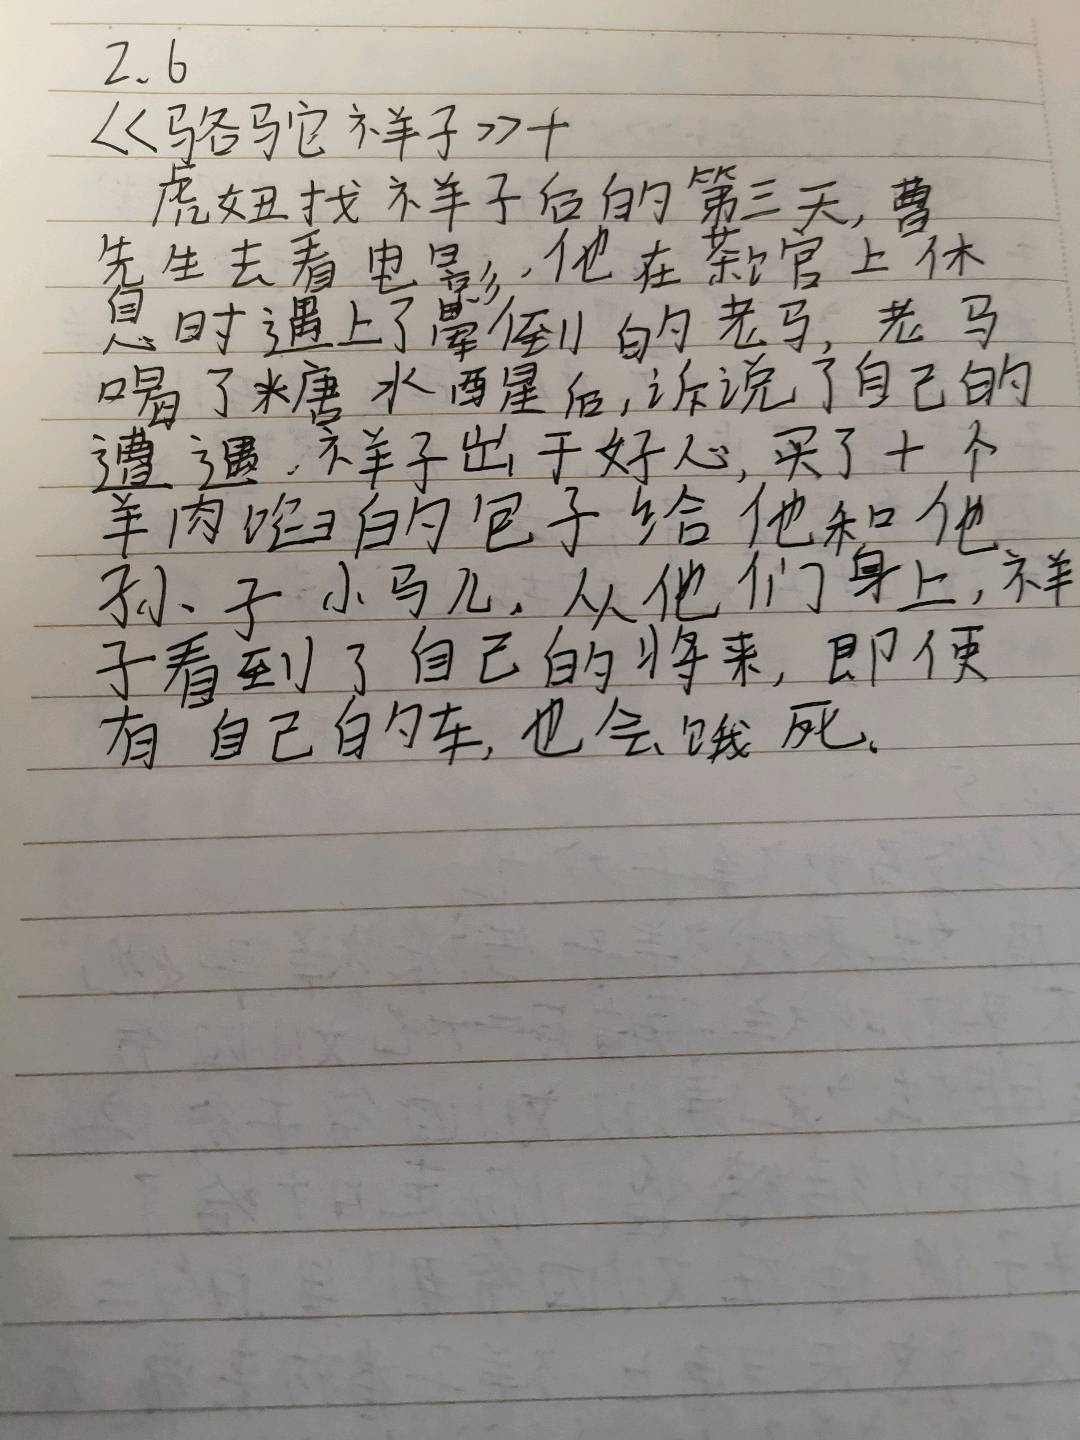 2.6
<<骆驼祥子>>十
虎妞找祥子后的第三天,曹
先生去看电影,他在茶馆上休
息时遇上了晕倒的老马,老马
喝了糖水酉星后,诉说了自己的
遭遇.祥子出于好心,买了十个
羊肉馅的包子给他和他
孙子小马儿.从他们身上,祥
子看到了自己的将来,即便
有自己的车,也会饿死.